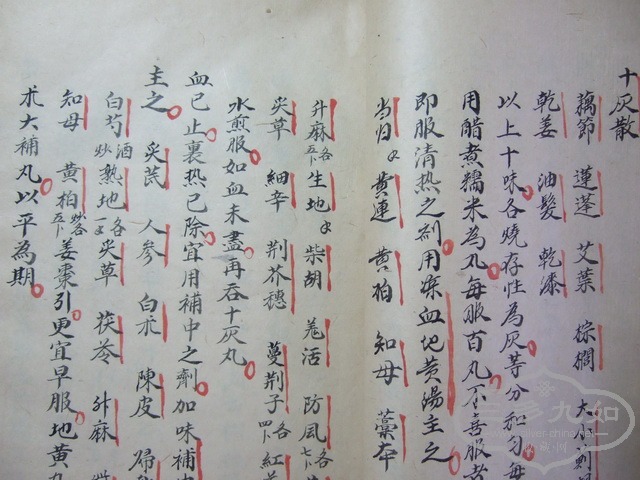 十灰散
藕節 蓮蓬 艾葉 棕櫚 大小薊根
乾姜 油髮 乾漆
以上十味各燒存性為灰等分和勻每
用醋煮糯米為丸每服百丸不喜服者
即服清热之剂用凉血地黄湯主之
当归 黄連 黄柏 知母 藁本
升麻各五卜 生地 柴胡 羗活 防風各七卜
炙草 細辛 荆芥穗 蔓荆子各四卜 紅
水煎服如血未盡再吞十灰丸
血已止裏热已除宜用補中之劑加味補中
主之 炙芪 人参 白朮 陳皮 歸
白芍酒炒 熟地各一 炙草 茯苓 升麻
知母 黄柏炒各五卜 姜棗引更宜早服地黄丸
朮大補丸以平為期